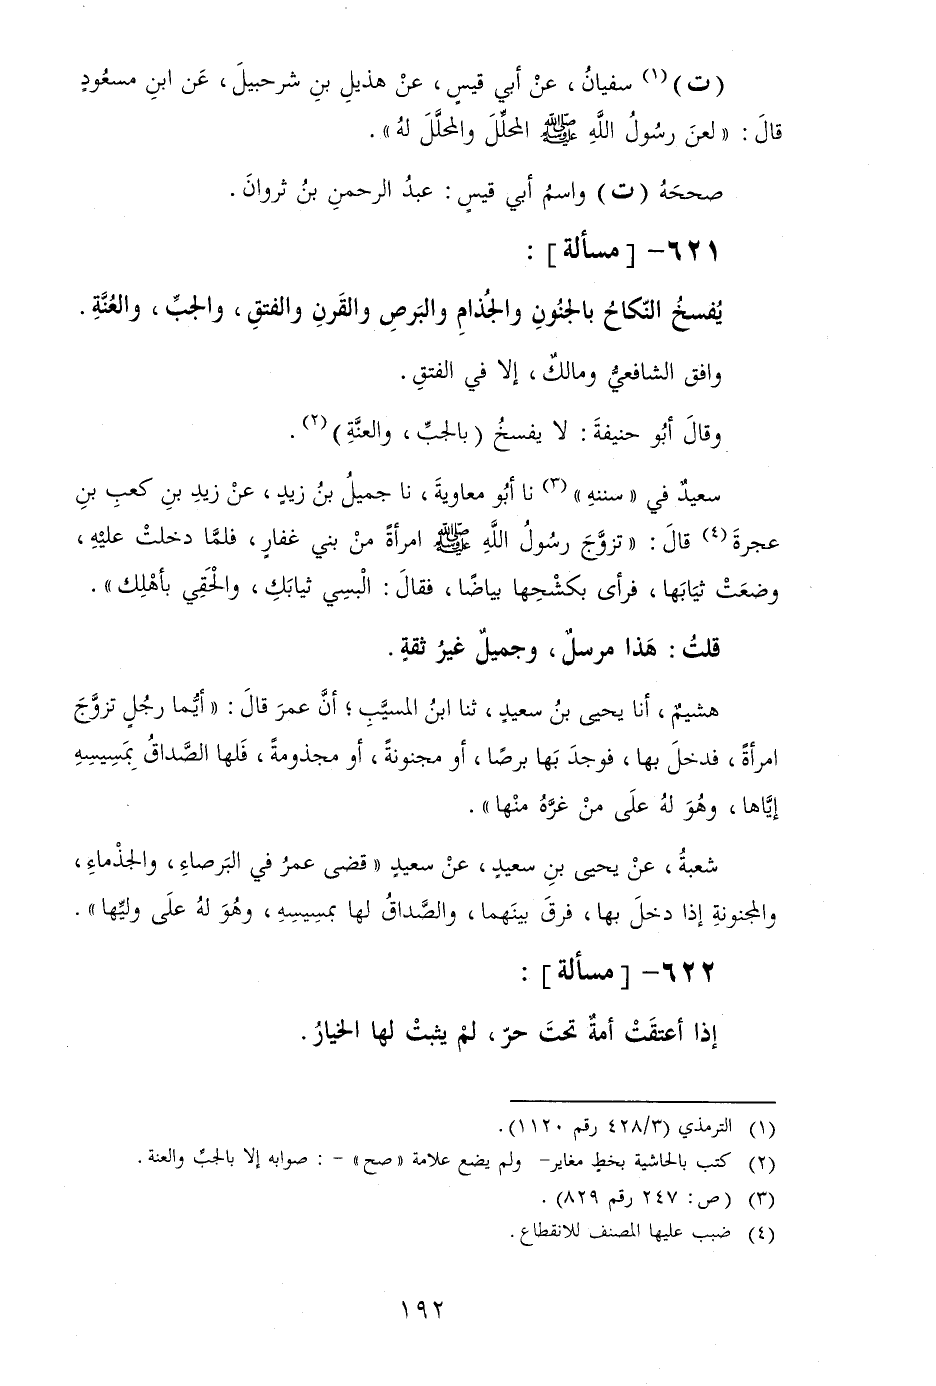 (ت)(١) سفيانُ، عنْ أبي قيسٍ، عنْ هذيلِ بنِ شرحبيلَ، عَن ابنِ مسعُودٍ
قالَ: «لعنَ رسُولُ اللَّهِ ﷺ المحلِّلَ والمحلَّلَ لهُ».
صححَهُ (ت) واسمُ أبي قيسٍ: عبدُ الرحمنِ بنُ ثروانَ.
٦٢١- [مسألة]:
يُفسخُ النّكاحُ بالجنُونِ والجُذامِ والبَرصِ والقَرنِ والفتقِ، والجبِّ، والعُنَّةِ.
وافق الشافعيُّ ومالكٌ، إلا في الفتقِ.
وقالَ أبُو حنيفةَ: لا يفسخُ (بالجبِّ، والعنَّةِ)(٢).
سعيدٌ في «سننهِ»(٣) نا أبُو معاويةَ، نا جميلُ بنُ زيدٍ، عنْ زيدِ بنِ كعبِ بنِ
عجرةَ(٤) قالَ: «تزوَّجَ رسُولُ اللَّهِ ﷺ امرأةً منْ بني غفارٍ، فلمَّا دخلتْ عليْهِ،
وضعَتْ ثيَابَها، فرأى بكشْحِها بياضًا، فقالَ: الْبسِي ثيابَكِ، والْحَقِي بأهْلِك».
قلتُ: هَذا مرسلٌ، وجميلٌ غيرُ ثقةٍ.
هشيمٌ، أنا يحيى بنُ سعيدٍ، ثنا ابنُ المسيَّبِ؛ أنَّ عمرَ قالَ: «أيُّما رجُلٍ تزوَّجَ
امرأةً، فدخلَ بها، فوجدَ بَها برصًا، أو مجنونةً، أو مجذومةً، فَلها الصَّداقُ بِمَسِيسِهِ
إيَّاها، وهُوَ لهُ علَى منْ غرَّهُ منْها».
شعبةُ، عنْ يحيى بنِ سعيدٍ، عنْ سعيدٍ «قضى عمرُ في البَرصاءِ، والجذْماءِ،
والمجنونةِ إذا دخلَ بها، فرقَ بينَهما، والصَّداقُ لها بمسِيسِهِ، وهُوَ لهُ علَى وليِّها».
٦٢٢- [مسألة]:
إذا أعتقَتْ أمةٌ تحتَ حرّ، لمْ يثبتْ لها الخيارُ.
(١) الترمذي (٤٢٨/٣ رقم ١١٢٠).
(٢) كتب بالحاشية بخطٍ مغاير- ولم يضع علامة «صح» - : صوابه إلا بالجبِّ والعنة.
(٣) (ص: ٢٤٧ رقم ٨٢٩).
(٤) ضبب عليها المصنف للانقطاع.
١٩٢